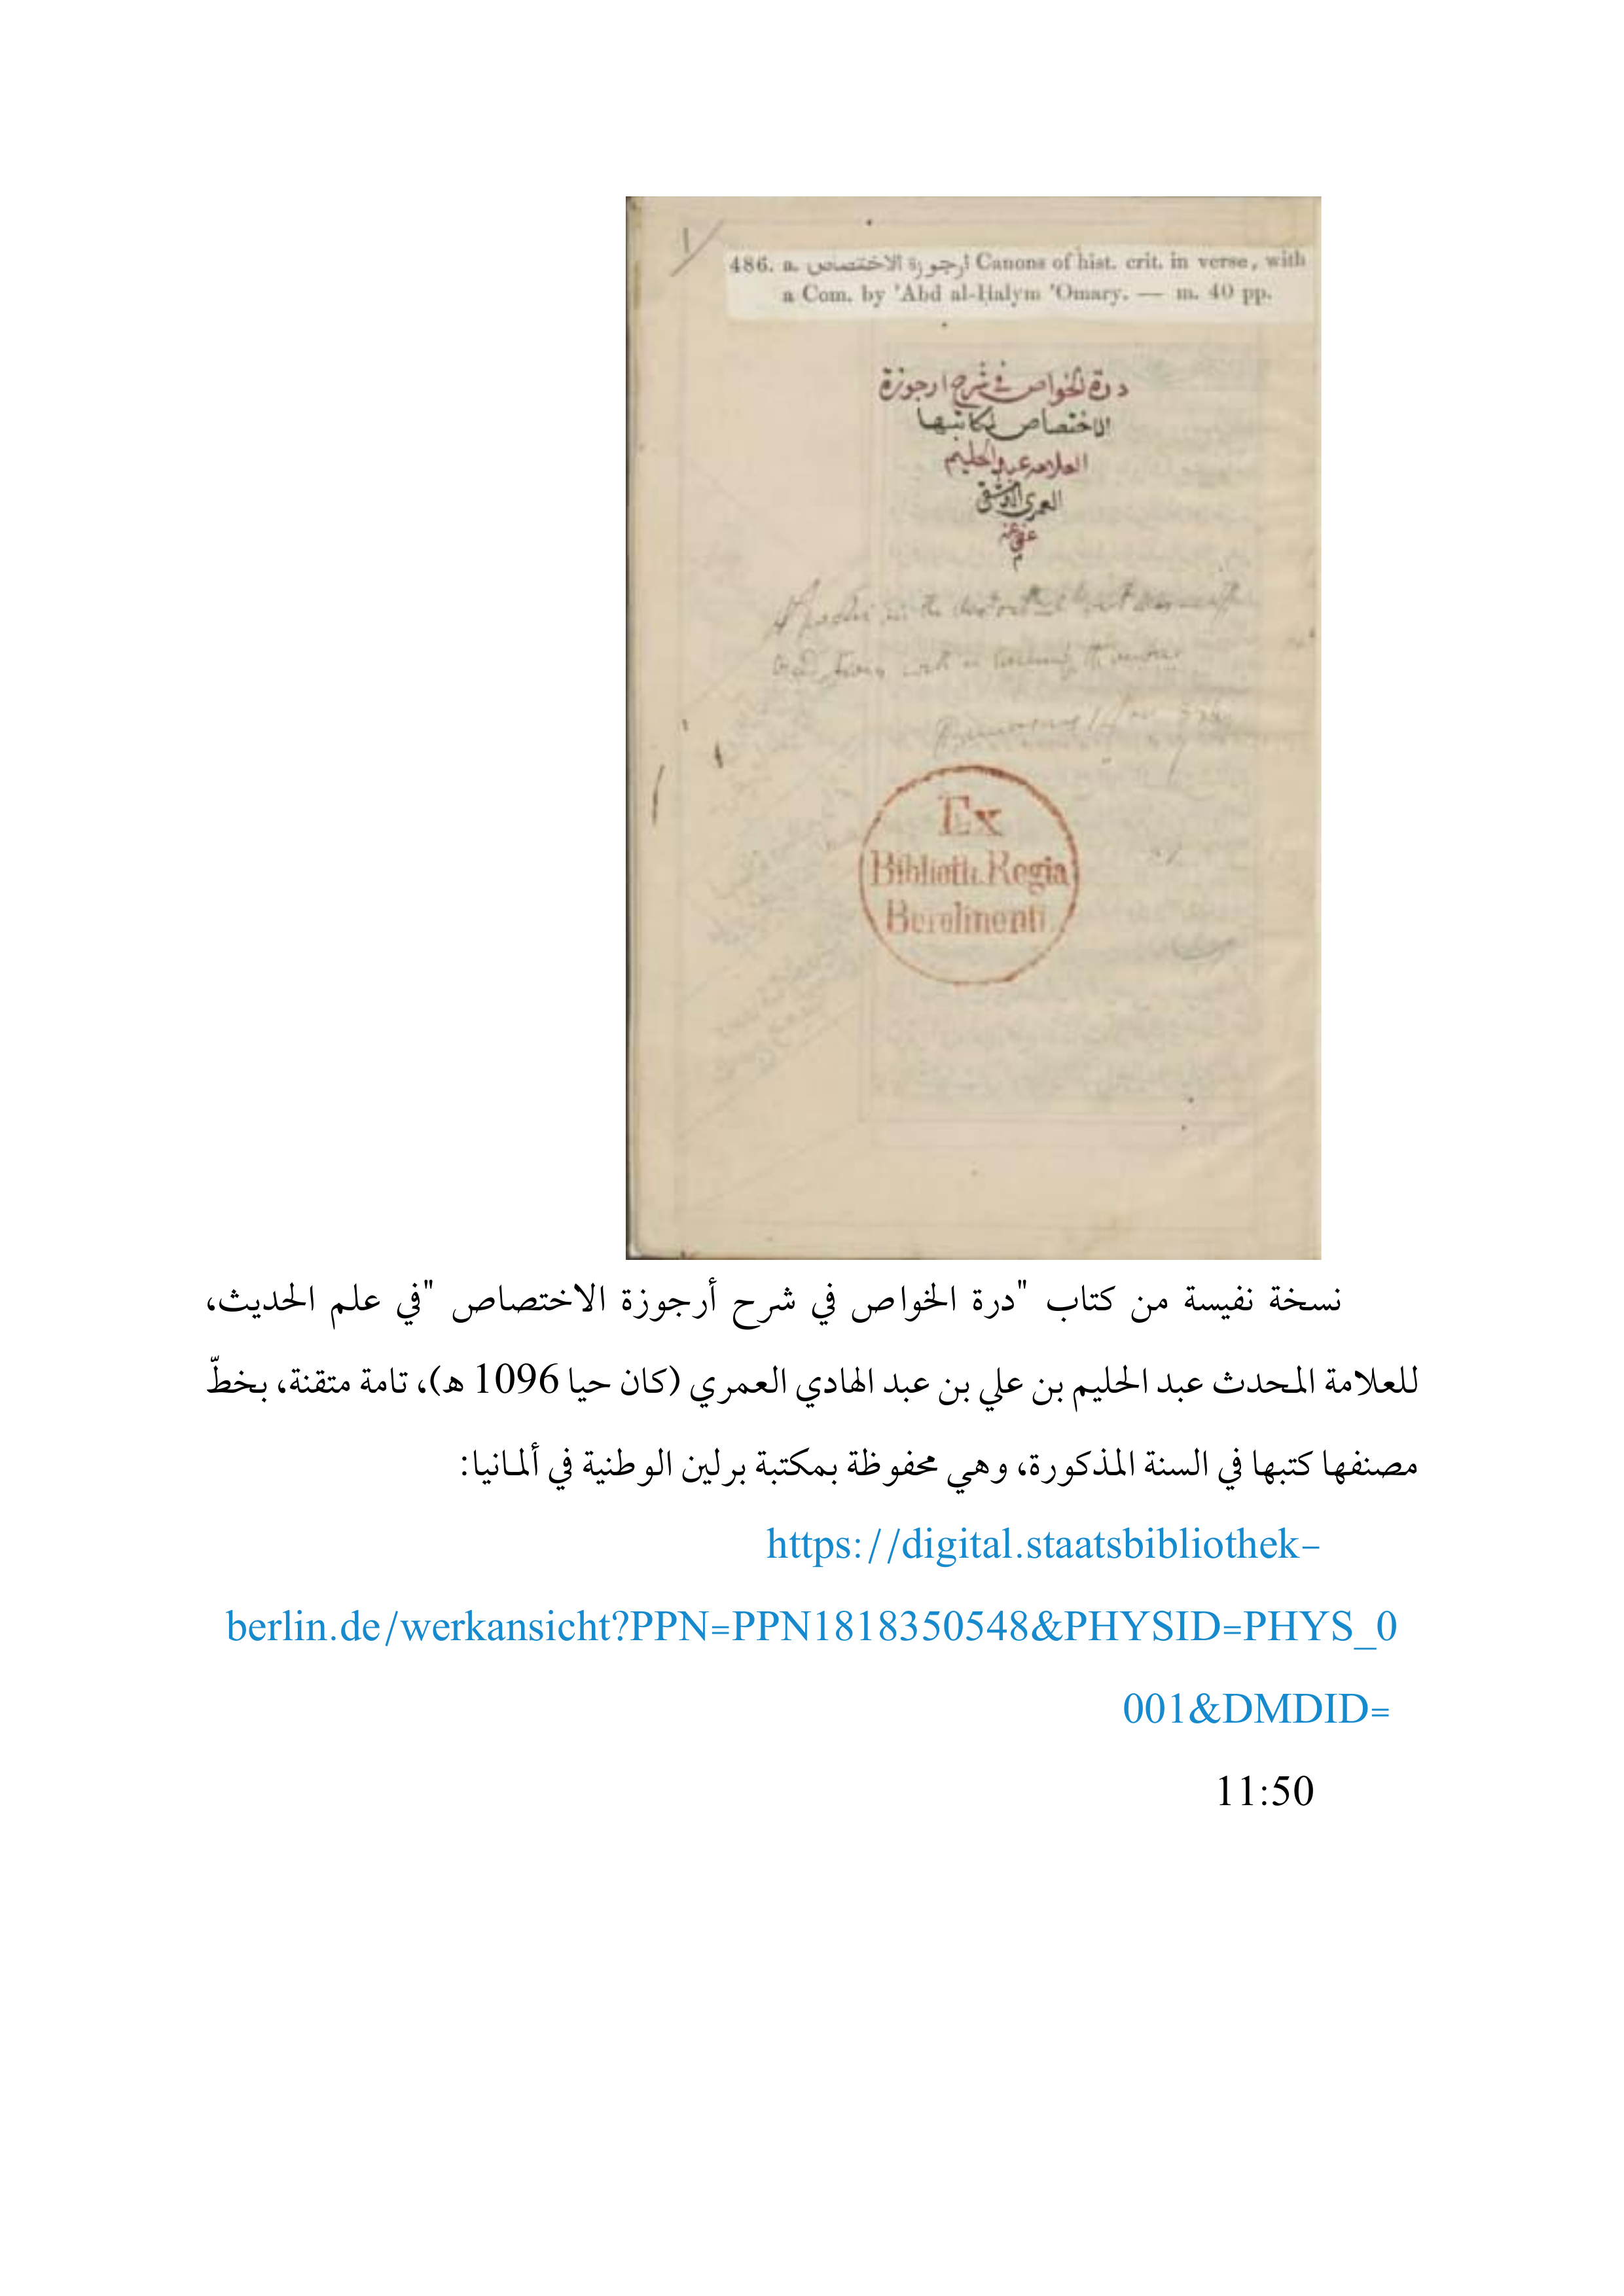 1
486. a. ارجوزة الاختصاص Canons of hist. crit. in verse, with
a Com. by 'Abd al-Ḥalym 'Omary. — m. 40 pp.
درة الخواص في شرح ارجوزة
الاختصاص لكاتبها
العلامه عبد الحليم
العمري الدمشقي
عفي عنه
م
in the
with
Ex
Biblioth. Regia
Berolinenſi.
نسخة نفيسة من كتاب "درة الخواص في شرح أرجوزة الاختصاص "في علم الحديث،
للعلامة المحدث عبد الحليم بن علي بن عبد الهادي العمري (كان حيا 1096 ه)، تامة متقنة، بخطّ
مصنفها كتبها في السنة المذكورة، وهي محفوظة بمكتبة برلين الوطنية في ألمانيا:
https://digital.staatsbibliothek-
berlin.de/werkansicht?PPN=PPN1818350548&PHYSID=PHYS_0
001&DMDID=
11:50